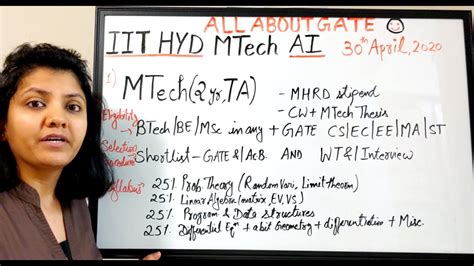 ALL ABOUT GATE
IIT HYD MTech AI 30th April, 2020
1)
MTech (2yr, TA) - MHRD stipend
- CW + MTech Thesis
Eligibility BTech|BE|MSc in any + GATE CS|EC|EE|MA|ST
Selection Procedure Shortlist - GATE &| AcB. AND WT &| Interview
Syllabus 25% Prob. Theory (Random Vari, Limit theorem)
25% Linear Algebra (matrix, EV, VS)
25% Program & Data structures
25% Differential Eqn + a bit Geometry + differentiation + Misc.